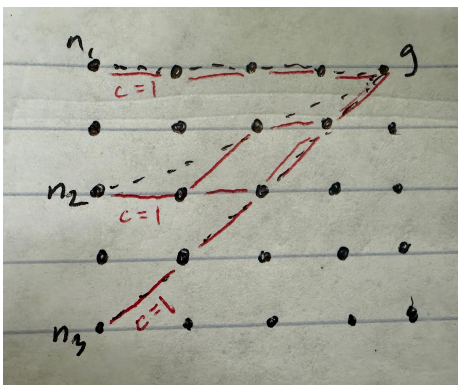 n₁ g
c=1
n₂
c=1
c=1
n₃